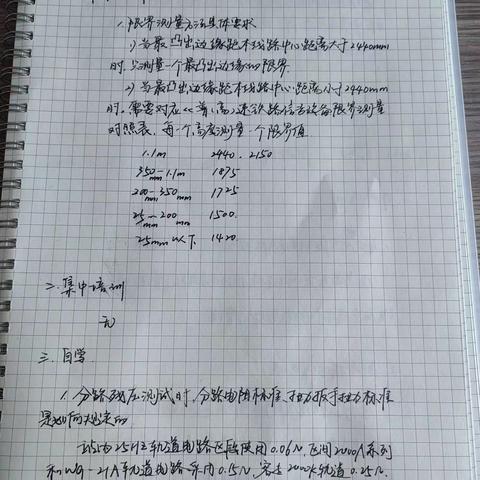 1、限界测量方法具体要求
1）当最凸出边缘距本线路中心距离大于2440mm
时，只测量一个最凸出边缘的限界.
2）当最凸出边缘距本线路中心距离小于2440mm
时，需要对应《普（高）速铁路信号设备限界测量
对照表，每一个高度测量一个限界值.
1.1m 2440、2150
350mm—1.1m 1875
200mm—350mm 1725
25mm—200mm 1500.
25mm以下 1420.
二、集中培训
无
三、自学.
1、分路残压测试时，分路电阻标准、扭力扳手扭力标准
是如何规定的
站内25Hz轨道电路区段使用0.06Ω，区间2000A系列
和WG-21A轨道电路采用0.15Ω，客专2000K轨道0.25Ω.